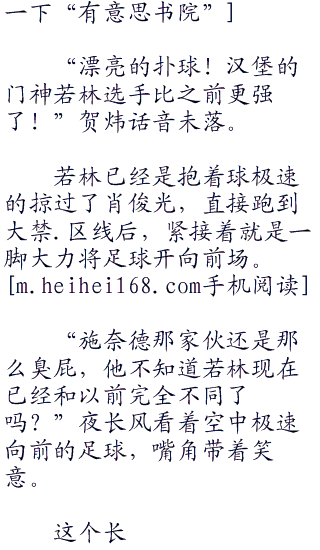 一下“有意思书院”]
“漂亮的扑球！汉堡的
门神若林选手比之前更强
了！”贺炜话音未落。
若林已经是抱着球极速
的掠过了肖俊光，直接跑到
大禁.区线后，紧接着就是一
脚大力将足球开向前场。
[m.heihei168.com手机阅读]
“施奈德那家伙还是那
么臭屁，他不知道若林现在
已经和以前完全不同了
吗？”夜长风看着空中极速
向前的足球，嘴角带着笑
意。
这个长